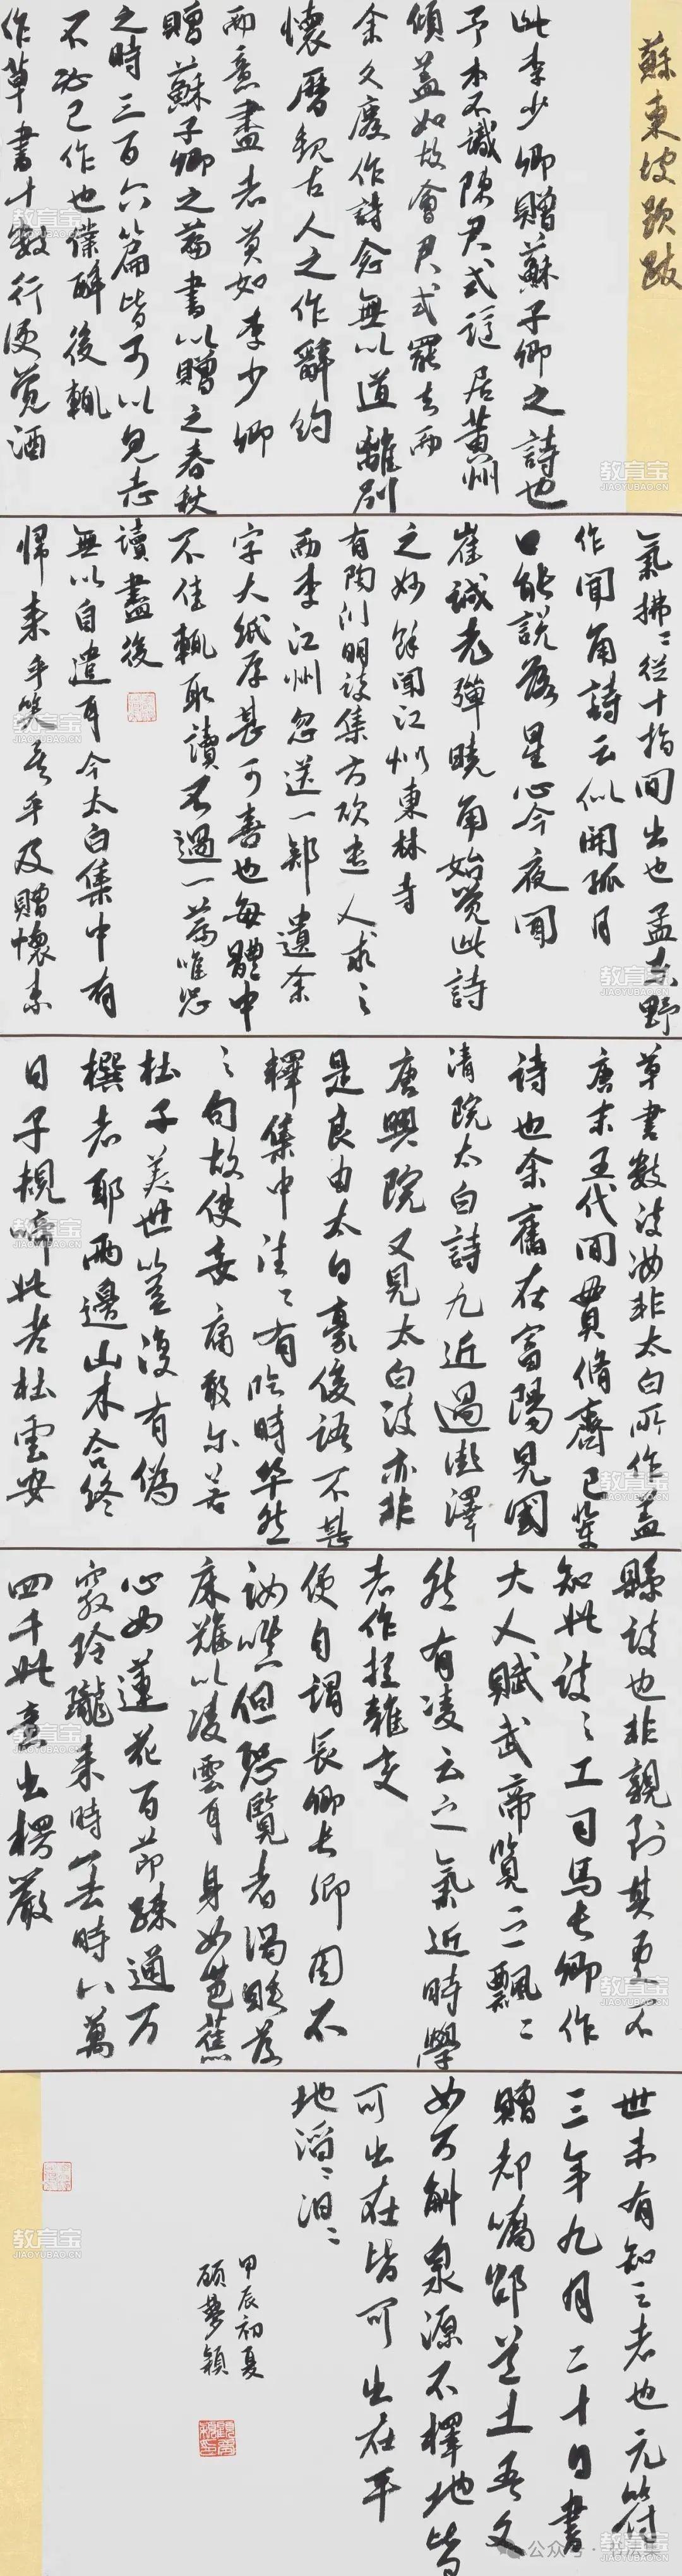 蘇東坡題跋
此李少卿贈蘇子卿之詩也
予本不識陳君式謫居黃州
傾蓋如故會君式罷去而
余久廢作詩念無以道離別
懷曆觀古人之作辭約
而意盡者莫如李少卿
贈蘇子卿之篇書以贈之春秋
之時三百六篇皆可以見志
不必己作也僕醉後輒
作草書十數行便覺酒
氣拂拂從十指間出也孟東野
作聞角詩云似開孤月
口能說落星心今夜聞
崔誠老彈曉角始覺此詩
之妙余聞江州東林寺
有陶淵明詩集方欲遣人求之
而李江州忽送一部遺余
字大紙厚甚可喜也每體中
不佳輒取讀不過一篇唯恐
讀盡後
無以自遣耳今太白集中有
歸來乎笑矣乎及贈懷素
草書數詩決非太白所作蓋
唐末五代間貫脩齊己輩
詩也余舊在富陽見國
清院太白詩九近過彭澤
唐興院又見太白詩亦非
是良由太白豪俊語不甚
擇集中往往有臨時率然
之句故使妄庸敢尔若
杜子美世豈復有偽
撰者耶兩邊山木合終
日子規啼此老杜雲安
縣詩也非親到其處不
知此詩之工司馬長卿作
大人賦武帝覽之飄飄
然有凌云之氣近時學
者作拉雜变
便自謂長卿長卿固不
汝嗔但恐覽者渴睡落
床難以凌雲耳身如芭蕉
心如蓮花百節疎通万
竅玲瓏來時一去時八萬
四千此意出楞嚴
世未有知之者也元符
三年九月二十日書
贈都嶠邵道士吾文
如万斛泉源不擇地皆
可出在皆可出在平
地滔滔汩汩
甲辰初夏
顧夢穎
教育宝
JIAOYUBAO.CN
公众号·书法集